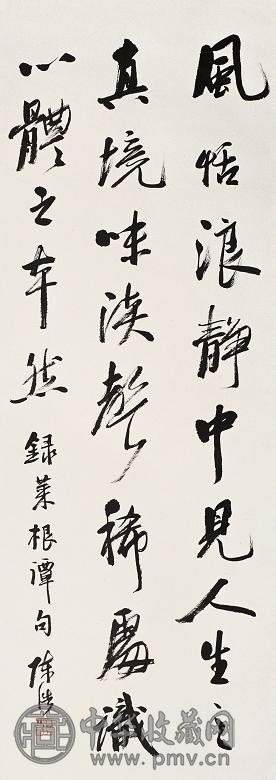 風恬浪靜中見人生之
真境味淡聲稀處識
心體之本然
錄菜根譚句 陳浩
中华收藏网
www.pmv.cn